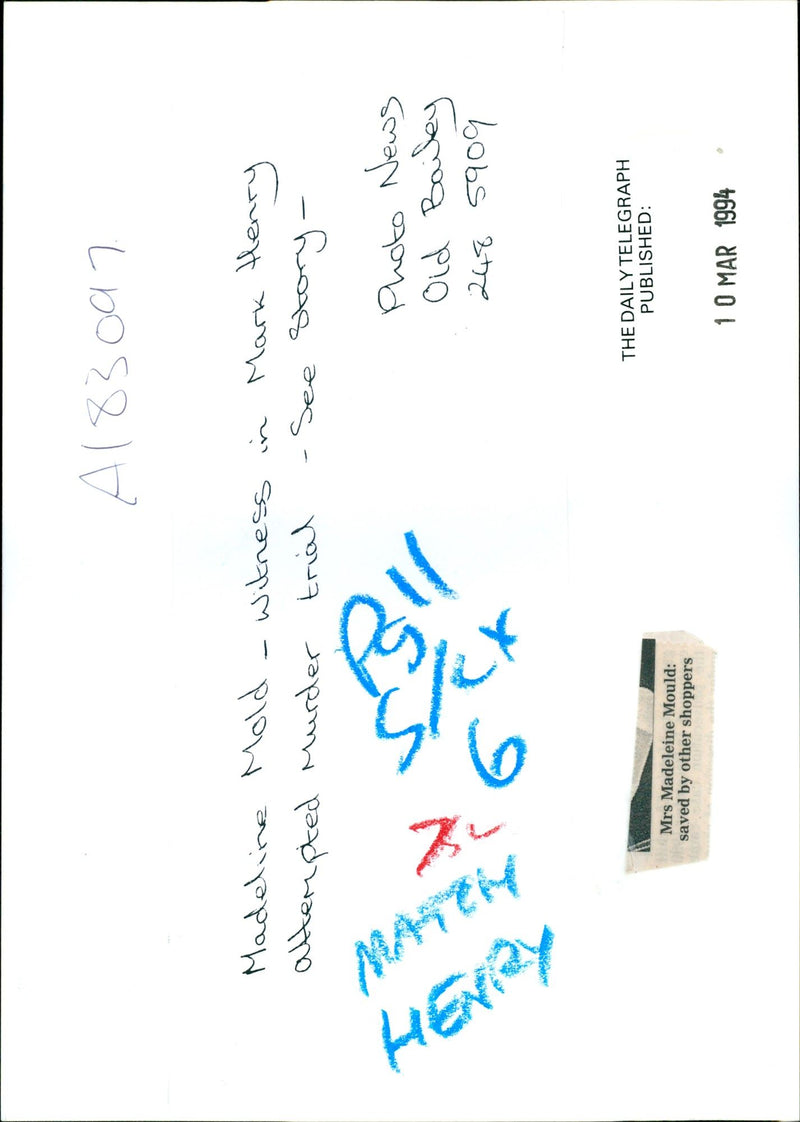 A183097
Madeline Mold - Witness in Mark Henry
attempted murder trial - See Story -
Photo News
Old Bailey
248 5909
THE DAILY TELEGRAPH
PUBLISHED:
10 MAR 1994
Pg 11
6
MATCH
HENRY
Mrs Madeleine Mould:
saved by other shoppers